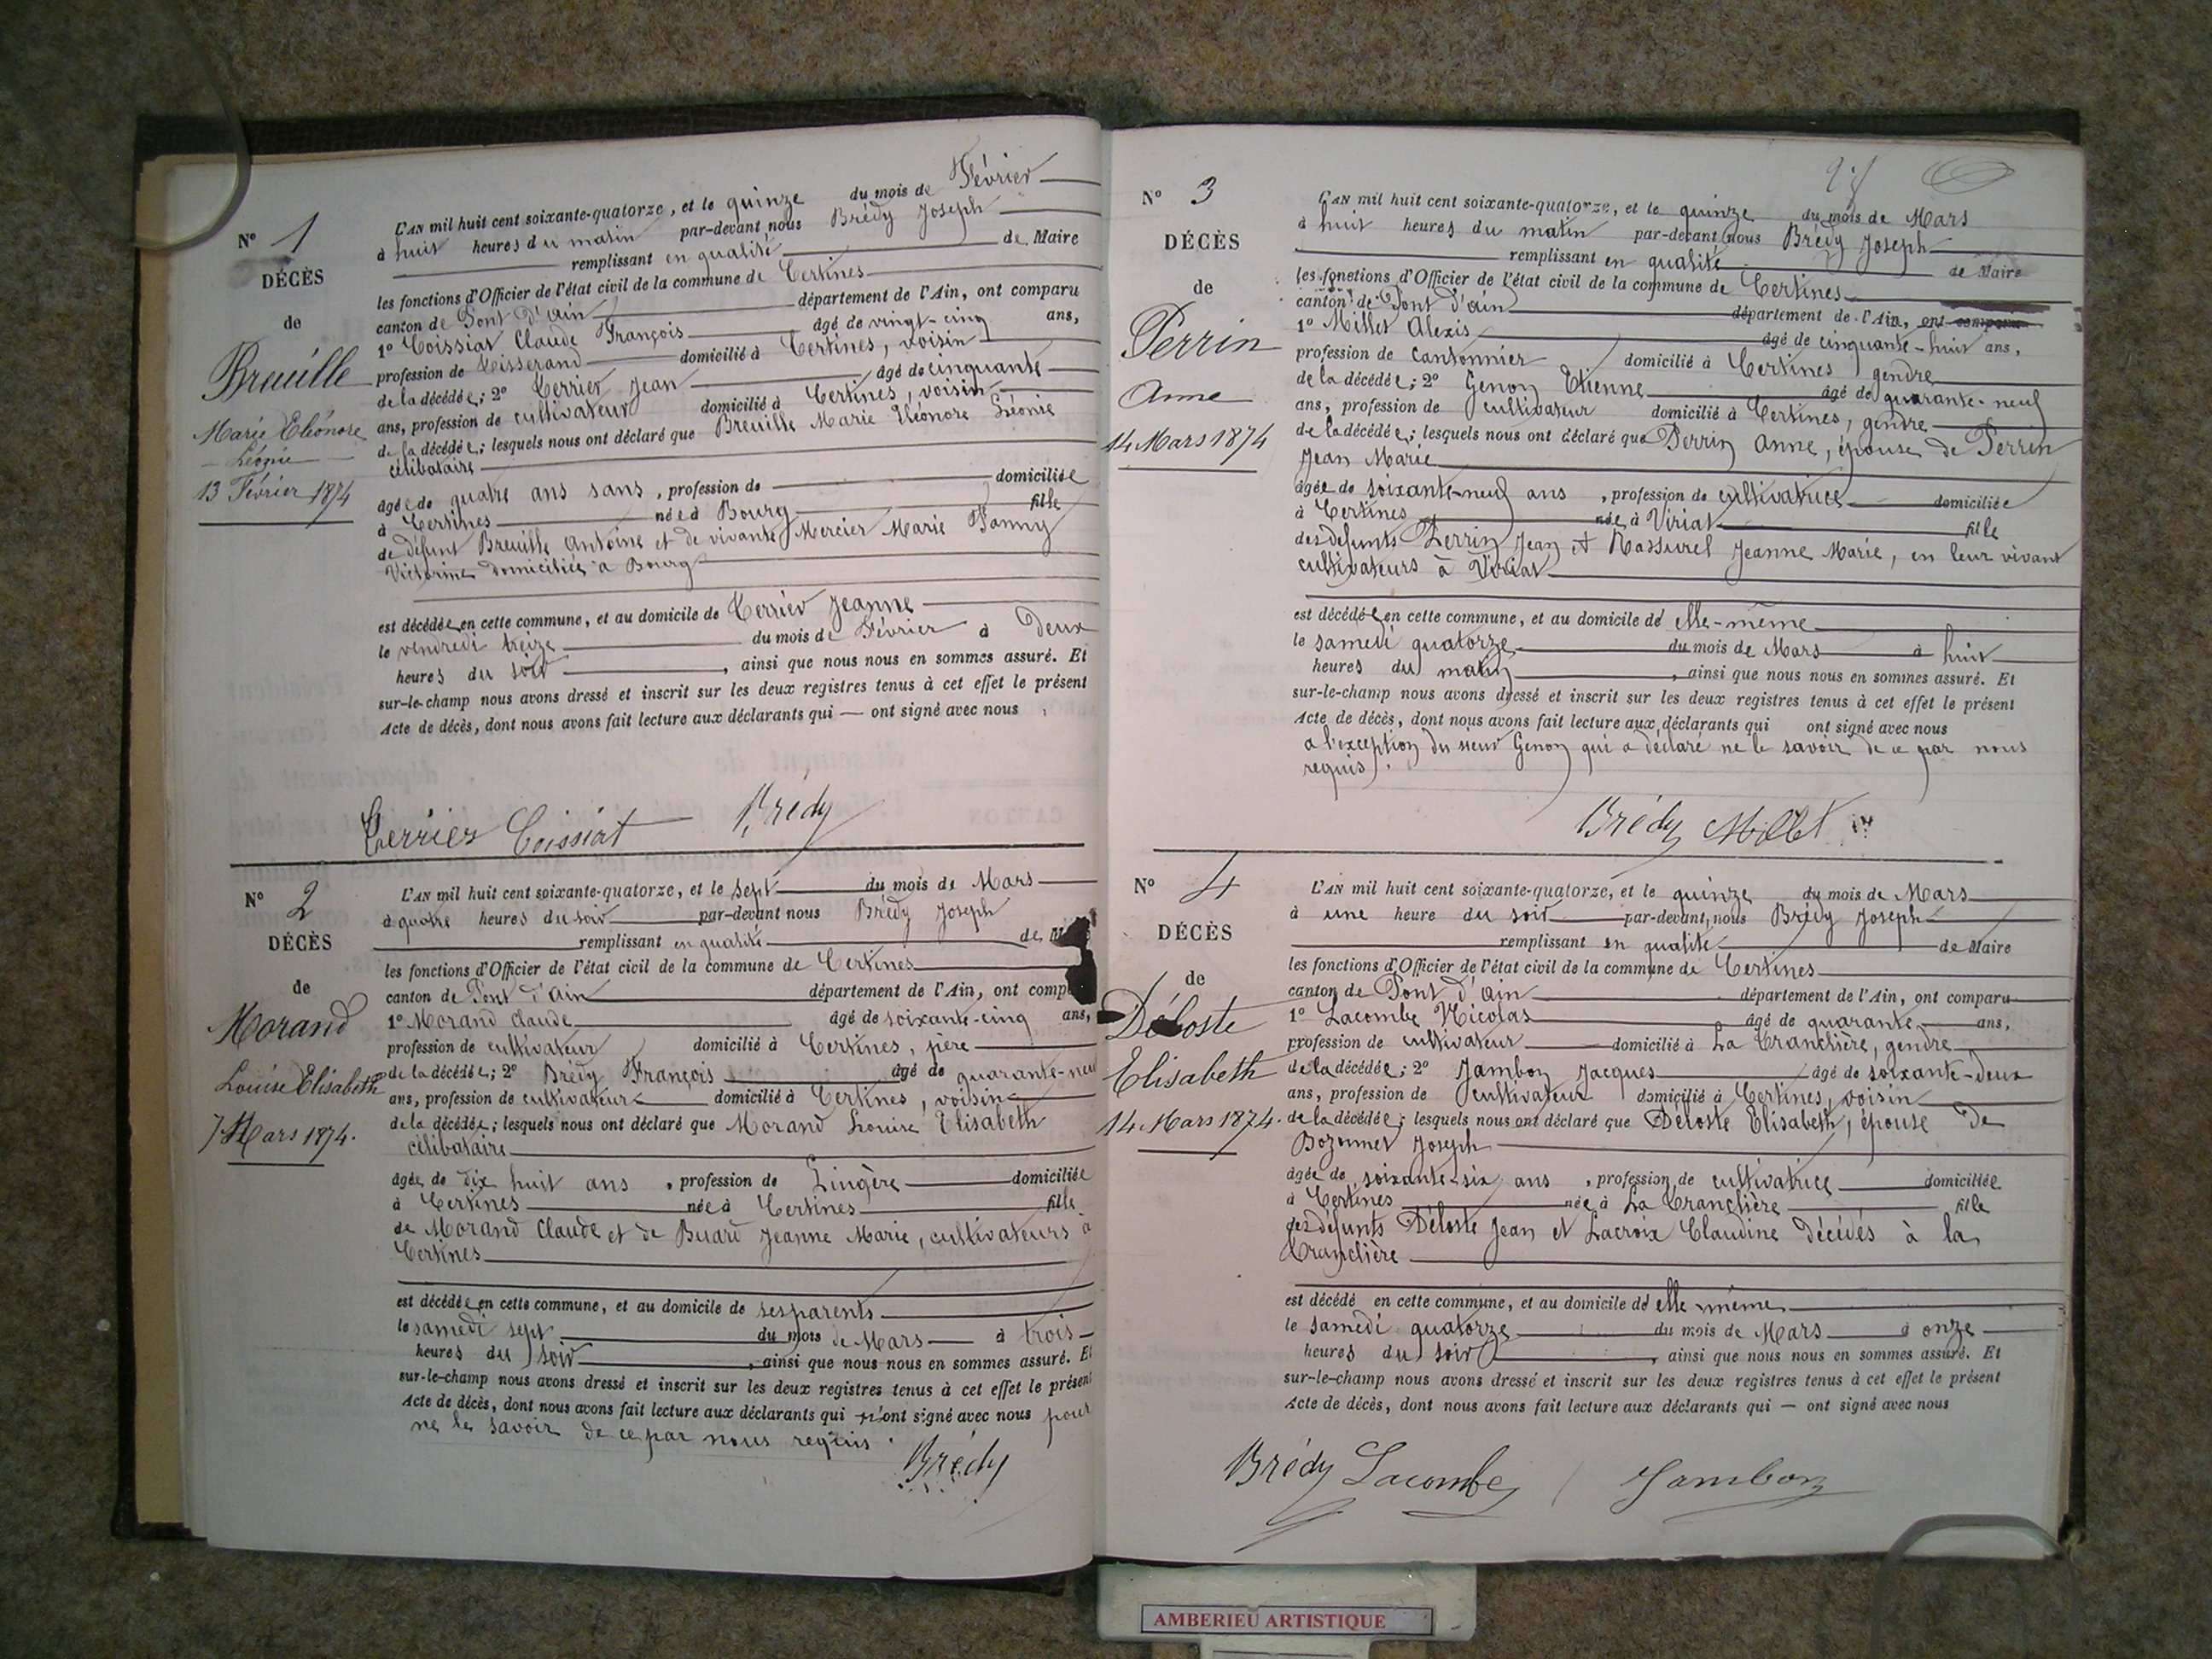 N° 1
DÉCÈS
de
Breuille
Marie Eléonore
Léonie
13 Février 1874
L'AN mil huit cent soixante-quatorze, et le quinze du mois de Février
à huit heures du matin par-devant nous Brédy Joseph
remplissant en qualité de Maire
les fonctions d'Officier de l'état civil de la commune de Certines
canton de Pont d'Ain département de l'Ain, ont comparu
1° Coissiat Claude François âgé de vingt-cinq ans,
profession de Tisserand domicilié à Certines, voisin
de la décédée; 2° Terrier Jean âgé de cinquante
ans, profession de cultivateur domicilié à Certines, voisin
de la décédée; lesquels nous ont déclaré que Breuille Marie Eléonore Léonie
célibataire
âgée de quatre ans sans, profession de domiciliée
à Certines née à Bourg fille
de défunt Breuille Antoine et de vivante Mercier Marie Fanny
Victorine domiciliée à Bourg
est décédée en cette commune, et au domicile de Terrier Jeanne
le vendredi treize du mois de Février à Deux
heures du soir, ainsi que nous nous en sommes assuré. Et
sur-le-champ nous avons dressé et inscrit sur les deux registres tenus à cet effet le présent
Acte de décès, dont nous avons fait lecture aux déclarants qui — ont signé avec nous
Terrier Coissiat Brédy
N° 2
DÉCÈS
de
Morand
Louise Elisabeth
7 Mars 1874.
L'AN mil huit cent soixante-quatorze, et le sept du mois de Mars
à quatre heures du soir par-devant nous Brédy Joseph
remplissant en qualité de
les fonctions d'Officier de l'état civil de la commune de Certines
canton de Pont d'Ain département de l'Ain, ont comp
1° Morand Claude âgé de soixante-cinq ans,
profession de cultivateur domicilié à Certines, père
de la décédée; 2° Brédy François âgé de quarante-neuf
ans, profession de cultivateur domicilié à Certines, voisin
de la décédée; lesquels nous ont déclaré que Morand Louise Elisabeth
célibataire
âgée de dix huit ans, profession de Lingère domiciliée
à Certines née à Certines fille
de Morand Claude et de Buard Jeanne Marie, cultivateurs à
Certines
est décédée en cette commune, et au domicile de ses parents
le samedi sept du mois de Mars à trois
heures du soir, ainsi que nous nous en sommes assuré. Et
sur-le-champ nous avons dressé et inscrit sur les deux registres tenus à cet effet le présent
Acte de décès, dont nous avons fait lecture aux déclarants qui n'ont signé avec nous pour
ne le savoir de ce par nous requis.
Brédy
N° 3
DÉCÈS
de
Perrin
Anne
14 Mars 1874
L'AN mil huit cent soixante-quatorze, et le quinze du mois de Mars
à huit heures du matin par-devant nous Brédy Joseph
remplissant en qualité de Maire
les fonctions d'Officier de l'état civil de la commune de Certines
canton de Pont d'Ain département de l'Ain, ont comparu
1° Millet Alexis âgé de cinquante-huit ans,
profession de Cantonnier domicilié à Certines gendre
de la décédée; 2° Genon Etienne âgé de quarante-neuf
ans, profession de cultivateur domicilié à Certines, gendre
de la décédée; lesquels nous ont déclaré que Perrin Anne, épouse de Perrin
Jean Marie
âgée de soixante-neuf ans, profession de cultivatrice domiciliée
à Certines née à Viriat fille
des défunts Perrin Jean et Rassurel Jeanne Marie, en leur vivant
cultivateurs à Viriat
est décédée en cette commune, et au domicile d'elle-même
le samedi quatorze du mois de Mars à huit
heures du matin, ainsi que nous nous en sommes assuré. Et
sur-le-champ nous avons dressé et inscrit sur les deux registres tenus à cet effet le présent
Acte de décès, dont nous avons fait lecture aux déclarants qui ont signé avec nous
à l'exception du sieur Genon qui a déclaré ne le savoir de ce par nous
requis.
Brédy Millet
N° 4
DÉCÈS
de
Déloste
Elisabeth
14 Mars 1874.
L'AN mil huit cent soixante-quatorze, et le quinze du mois de Mars
à une heure du soir par-devant nous Brédy Joseph
remplissant en qualité de Maire
les fonctions d'Officier de l'état civil de la commune de Certines
canton de Pont d'Ain département de l'Ain, ont comparu
1° Lacombe Nicolas âgé de quarante ans,
profession de cultivateur domicilié à La Tranclière, gendre
de la décédée; 2° Jambon Jacques âgé de soixante-deux
ans, profession de cultivateur domicilié à Certines, voisin
de la décédée; lesquels nous ont déclaré que Déloste Elisabeth, épouse de
Bozonnet Joseph
âgée de soixante-six ans, profession de cultivatrice domiciliée
à Certines née à La Tranclière fille
des défunts Déloste Jean et Lacroix Claudine décédés à la
Tranclière
est décédé en cette commune, et au domicile d'elle même
le samedi quatorze du mois de Mars à onze
heures du soir, ainsi que nous nous en sommes assuré. Et
sur-le-champ nous avons dressé et inscrit sur les deux registres tenus à cet effet le présent
Acte de décès, dont nous avons fait lecture aux déclarants qui — ont signé avec nous
Brédy Lacombe Jambon
AMBERIEU ARTISTIQUE